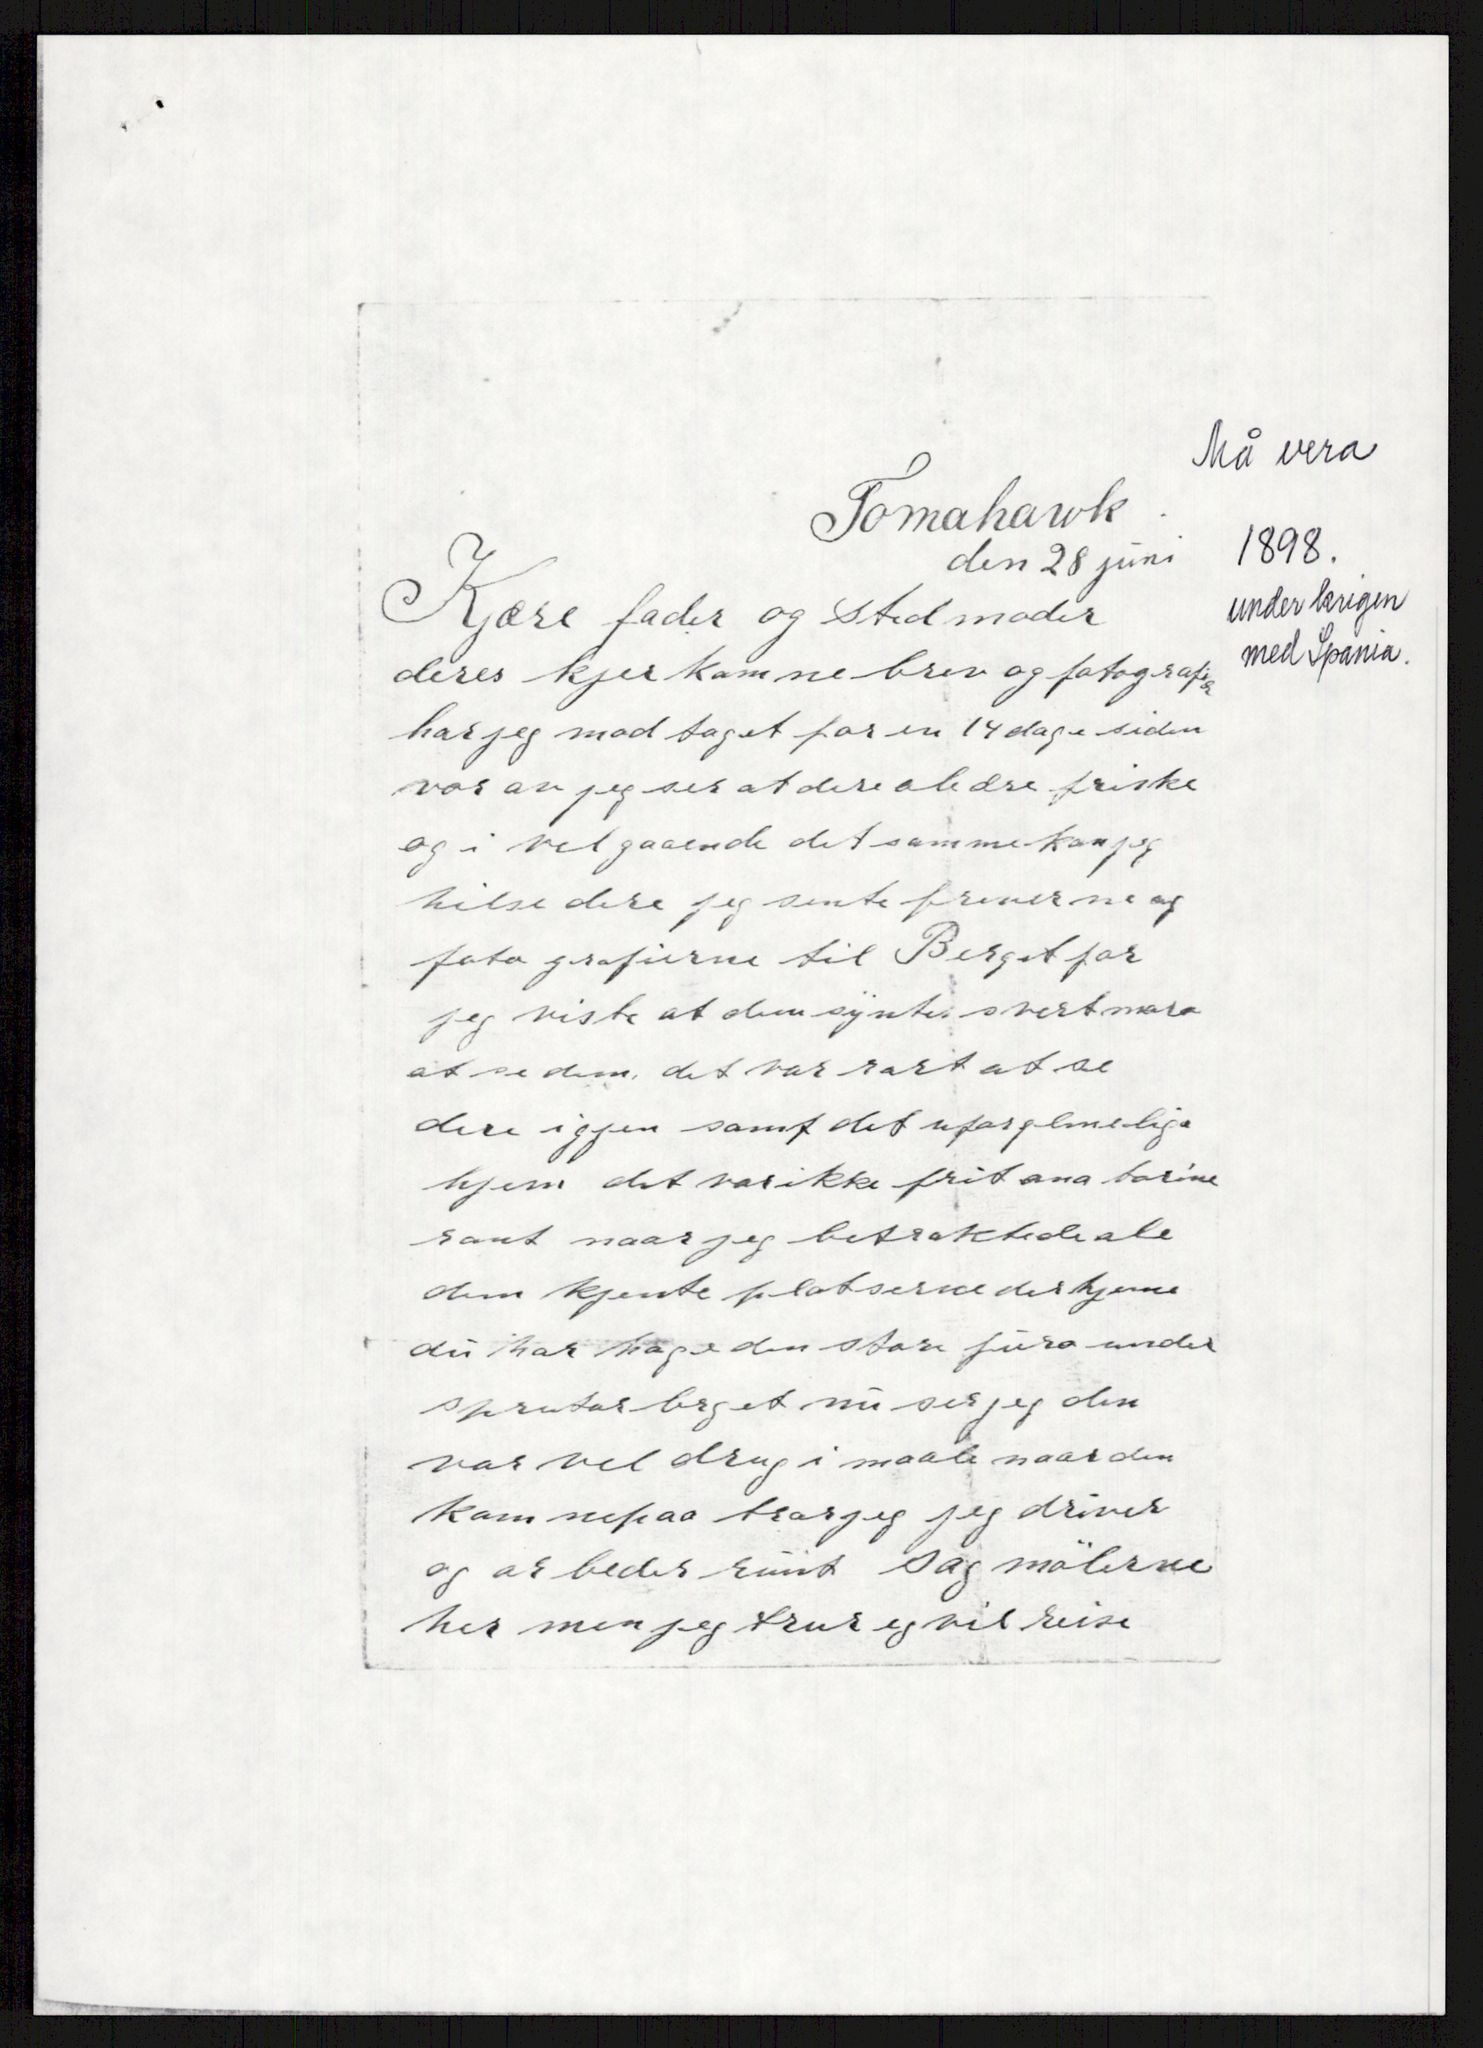 Må vera
1898.
under krigen
med Spania.
Tomahawk
den 28 juni
Kjære fader og stedmoder
deres kjerkomne brev og fotografie
har jeg mod taget for en 14 dage siden
vor av jeg ser at dere ale ære friske
og i vel gaaende det samme kan jeg
hilse dere jeg sente brevene og
foto grafierne til Berget for
jeg viste at dem synte svert mora
at se dem. det var rart at se
dere igjen samt det uforglmelige
hjem det var ikke frit ana torine
rant naar jeg betraktede ale
dem kjente platserne der hjeme
du har hage den store fura under
berget nu ser jeg den
var vel drug i maale naar den
kom nepaa tror jeg jeg driver
og ar beder runt Sag mölerne
her men jeg trur eg vil reise